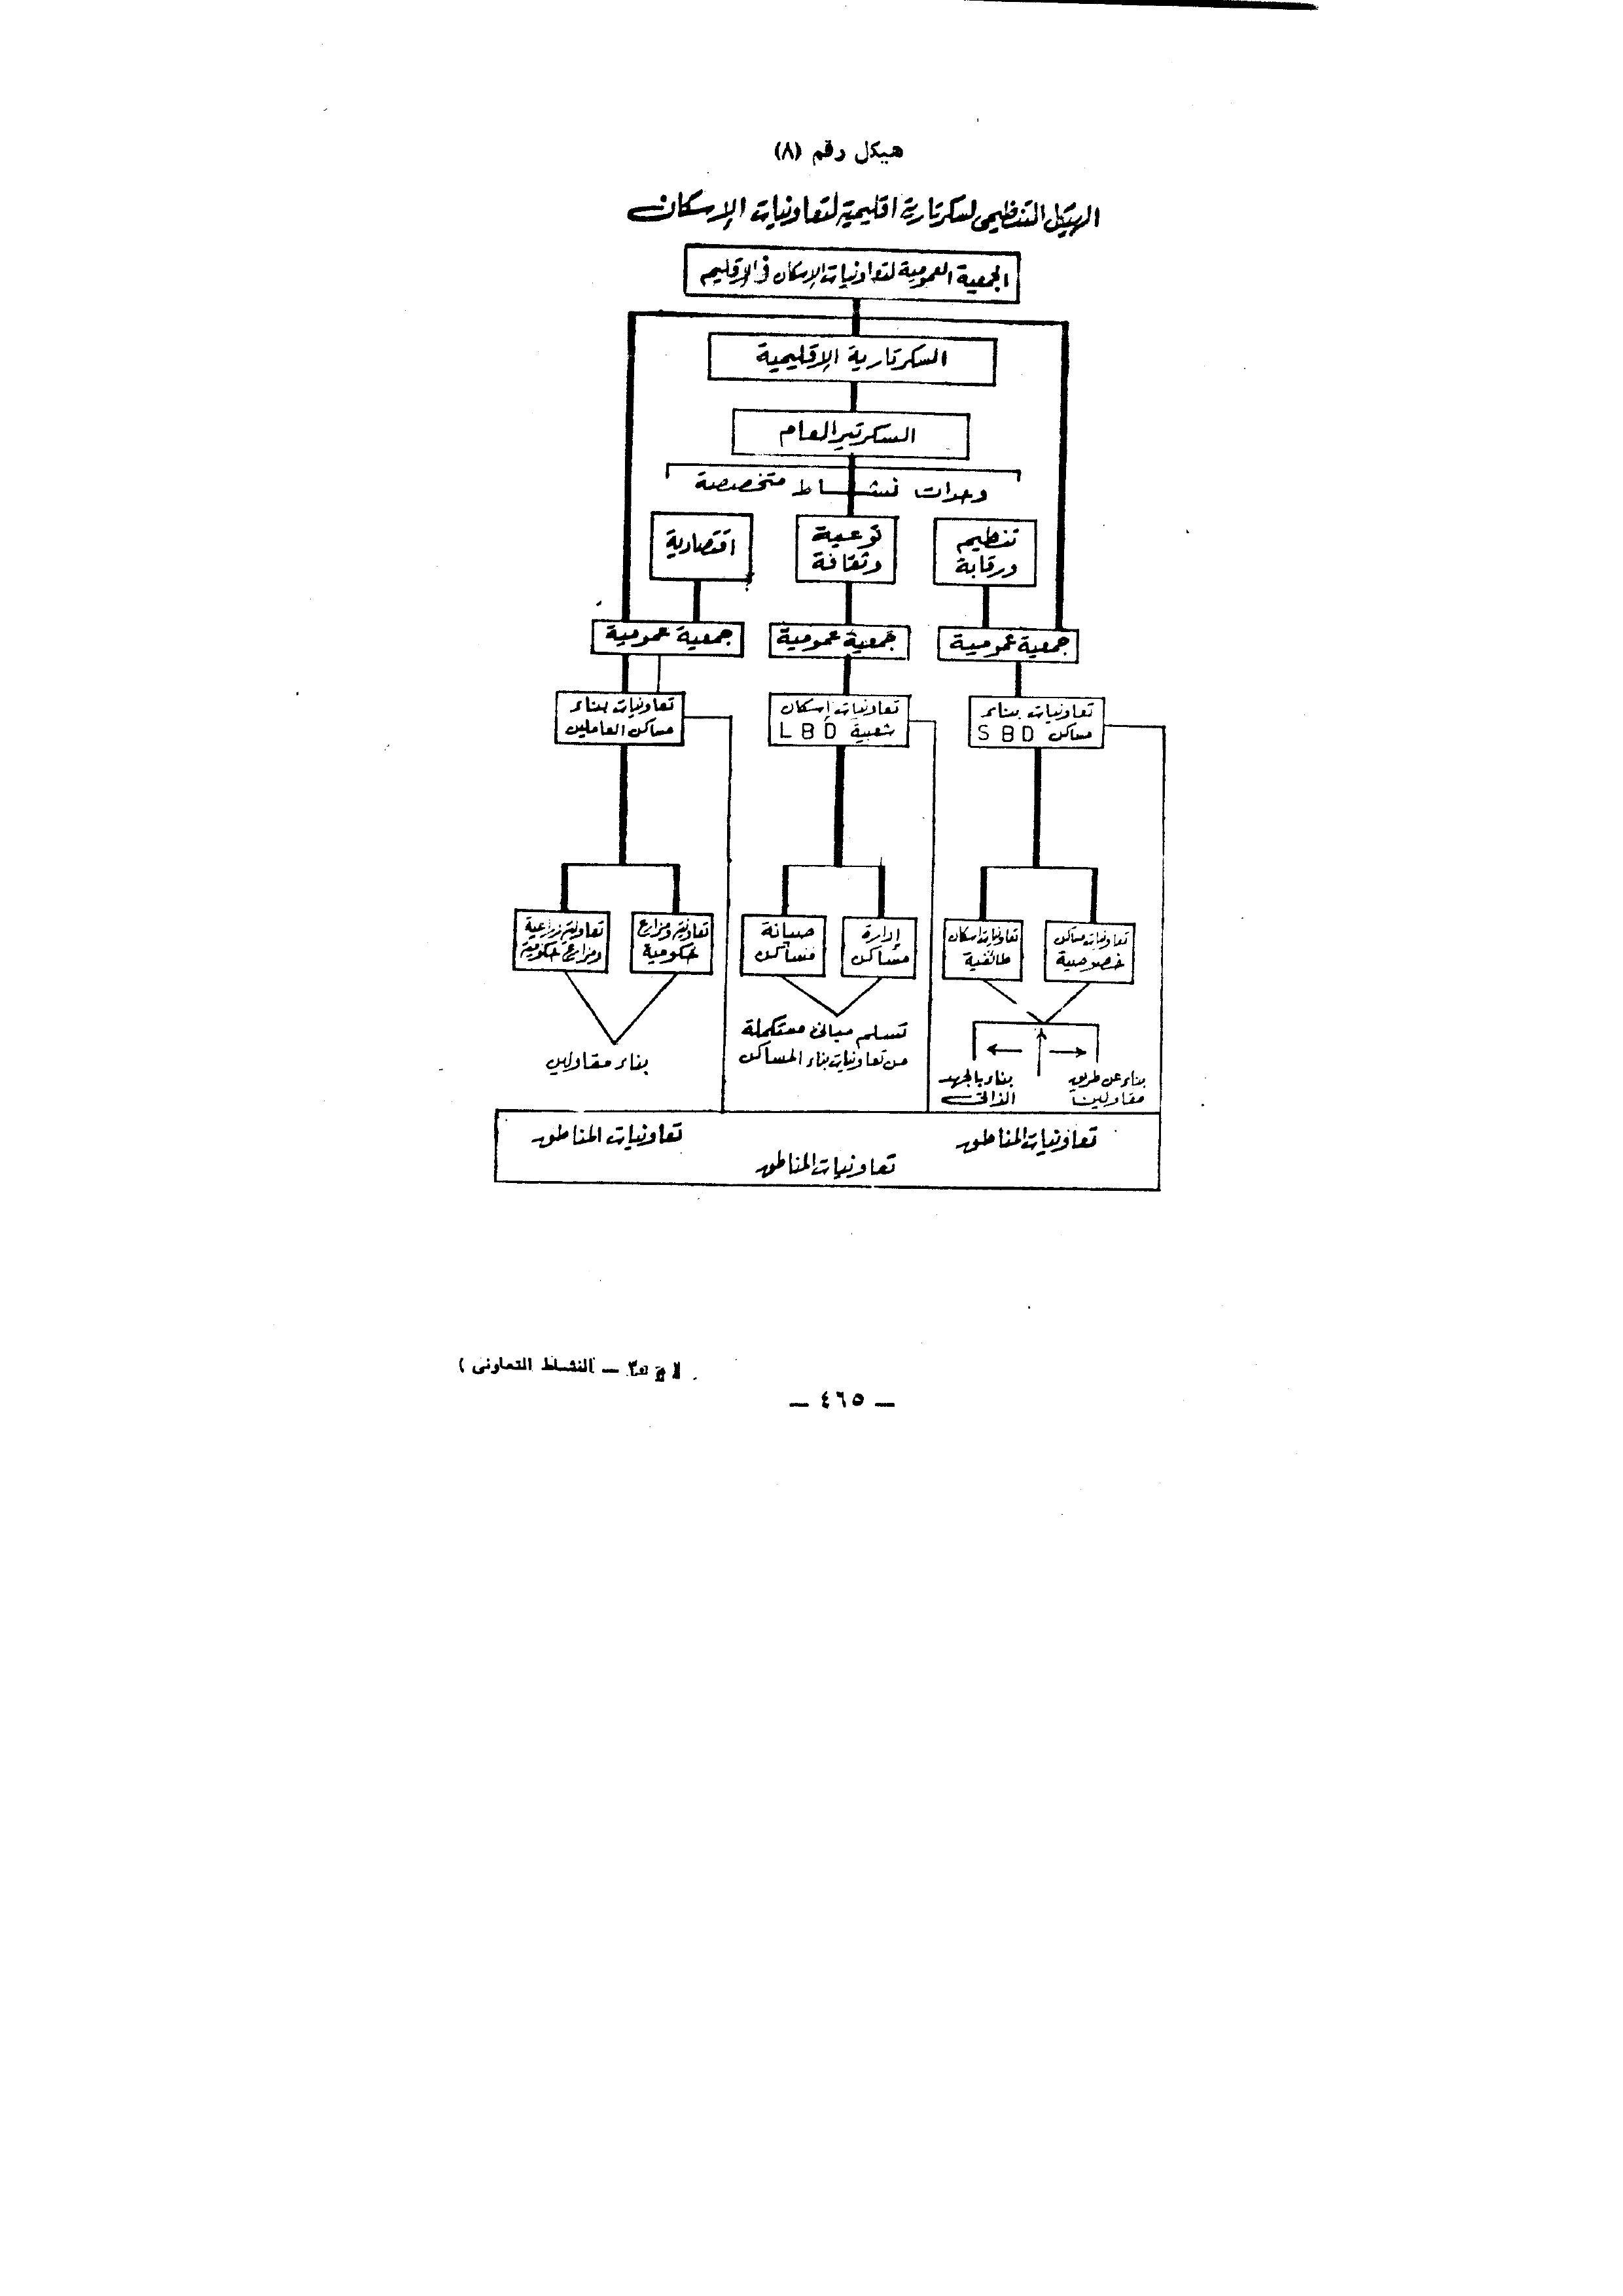 هيكل رقم (٨)
الهيكل التنظيمى لسكرتارية اقليمية لتعاونيات الإسكان
الجمعية العمومية لتعاونيات الإسكان فى الإقليم
السكرتارية الإقليمية
السكرتير العام
وحدات نشاط متخصصة
تنظيم
ورقابة
توعية
وثقافة
اقتصادية
جمعية عمومية
جمعية عمومية
جمعية عمومية
تعاونيات بناء
مساكن SBD
تعاونيات إسكان
شعبية LBD
تعاونيات بناء
مساكن العاملين
تعاونيات مساكن
خصوصية
تعاونيات اسكان
طائفية
إدارة
مساكن
صيانة
مساكن
ومزارع
حكومية
زراعية
ومزارع حكومية
بناء عن طريق
مقاولين
بناء بالجهد
الذاتى
تسلم مبانى مستكملة
من تعاونيات بناء المساكن
بناء مقاولين
تعاونيات المناطق
تعاونيات المناطق
تعاونيات المناطق
— النشاط التعاونى )
— ٤٦٥ —